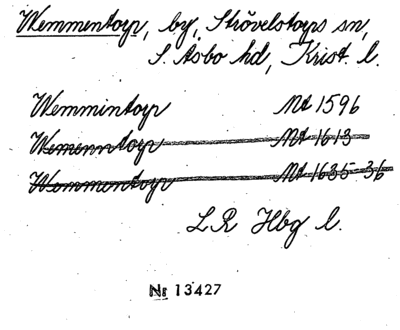 Wemmentorp, by, Strövelstorps sn,
S. Åsbo hd, Krist. l.
Wemmintorp Mt 1596
Wemenntorp Mt 1613
Wemmentorp Mt 1635-36
L R Hbg l.
Nr 13427